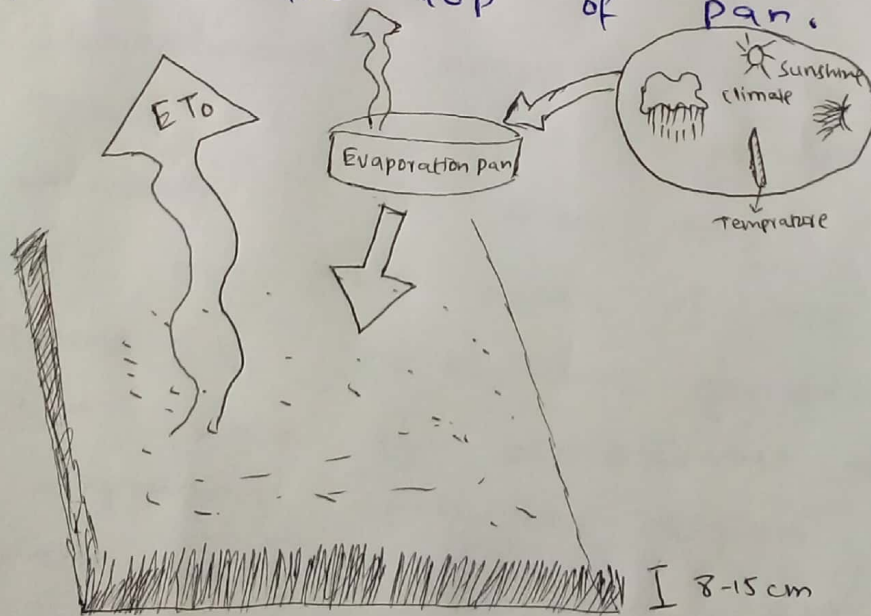 top of pan.
ETo
Evaporation pan
sunshine
climate
Temprature
8-15 cm